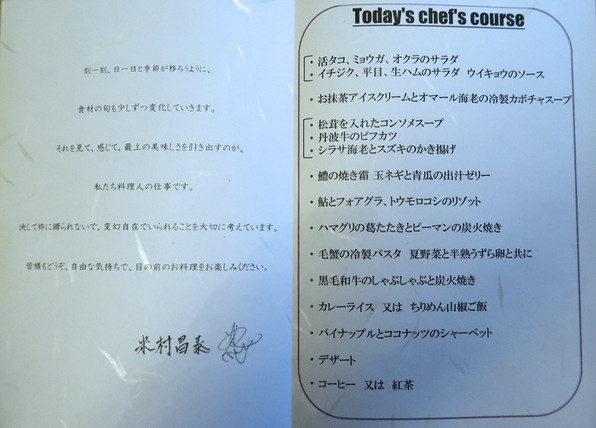 刻一刻、日一日と季節が移ろうように、
食材の旬も少しずつ変化していきます。
それを見て、感じて、最上の美味しさを引き出すのが、
私たち料理人の仕事です。
決して枠に縛られないで、変幻自在でいられることを大切に考えています。
皆様もどうぞ、自由な気持ちで、目の前のお料理をお楽しみください。
米村昌泰
Today's chef's course
・活タコ、ミョウガ、オクラのサラダ
・イチジク、平目、生ハムのサラダ ウイキョウのソース
・お抹茶アイスクリームとオマール海老の冷製カボチャスープ
・松茸を入れたコンソメスープ
・丹波牛のビフカツ
・シラサ海老とスズキのかき揚げ
・鱧の焼き霜 玉ネギと青瓜の出汁ゼリー
・鮎とフォアグラ、トウモロコシのリゾット
・ハマグリの葛たたきとピーマンの炭火焼き
・毛蟹の冷製パスタ 夏野菜と半熟うずら卵と共に
・黒毛和牛のしゃぶしゃぶと炭火焼き
・カレーライス 又は ちりめん山椒ご飯
・パイナップルとココナッツのシャーベット
・デザート
・コーヒー 又は 紅茶